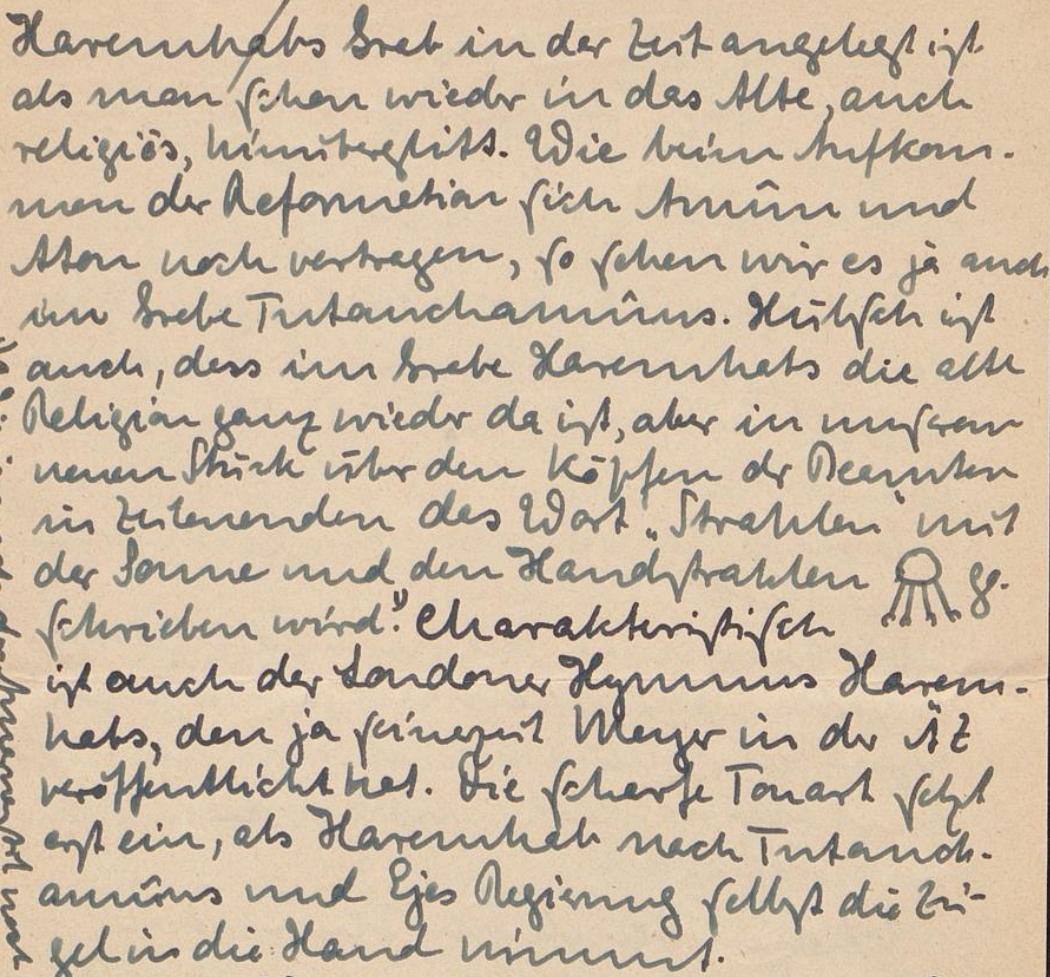 Haremhabs Grab in der Zeit angelegt ist
als man schon wieder in das Alte, auch
religiös, hinüberglitt. Wie beim Aufkom-
men der Reformation sich Amûn und
Aton noch vertragen, so sehen wir es ja auch
im Grabe Tutanchamûns. Hübsch ist
auch, dass im Grabe Haremhabs die alte
Religion ganz wieder da ist, aber in unserem
neuen Stück über den Köpfen der Beamten
in Zeilenenden das Wort „Strahlen" mit
der Sonne und den Handstrahlen ge-
schrieben wird. Charakteristisch
ist auch der Londoner Hymnus Harem-
habs, den ja seinerzeit Meyer in der ÄZ
veröffentlicht hat. Die scharfe Tonart setzt
erst ein, als Haremhab nach Tutanch-
amûns und Ejes Regierung selbst die Zü-
gel in die Hand nimmt.